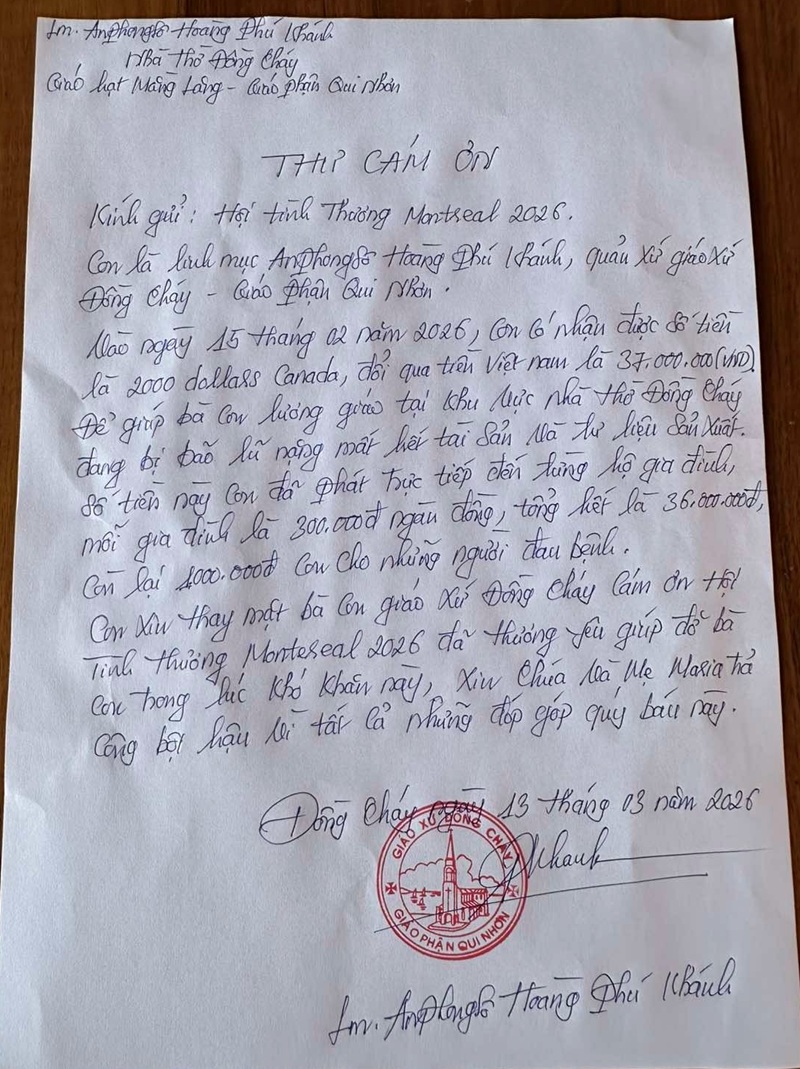 Lm. Anphongsô Hoàng Phú Khánh
Nhà Thờ Đồng Cháy
Giáo hạt Mằng Lăng - Giáo phận Qui Nhơn
THƯ CÁM ƠN
Kính gửi: Hội tình Thương Montreal 2026.
Con là linh mục Anphongsô Hoàng Phú Khánh, quản xứ giáo xứ
Đồng Cháy - Giáo Phận Qui Nhơn.
Vào ngày 15 tháng 02 năm 2026, con có nhận được số tiền
là 2000 dollars Canada, đổi qua tiền Việt nam là 37.000.000 (VND)
Để giúp bà con lương giáo tại khu vực nhà thờ Đồng Cháy
đang bị bão lũ nặng mất hết tài sản và tư liệu sản xuất.
số tiền này con đã phát trực tiếp đến từng hộ gia đình,
mỗi gia đình là 300.000đ ngàn đồng, tổng hết là 36.000.000đ,
còn lại 1000.000đ con cho những người đau bệnh.
Con xin thay mặt bà con giáo xứ Đồng Cháy cám ơn Hội
Tình thương Montereal 2026 đã thương yêu giúp đỡ bà
con trong lúc khó khăn này, xin Chúa và Mẹ Maria trả
công bội hậu vì tất cả những đóp góp quý báu này.
Đồng Cháy ngày 13 tháng 03 năm 2026
GIÁO XỨ ĐỒNG CHÁY
GIÁO PHẬN QUI NHƠN
Khanh
Lm. Anphongsô Hoàng Phú Khánh